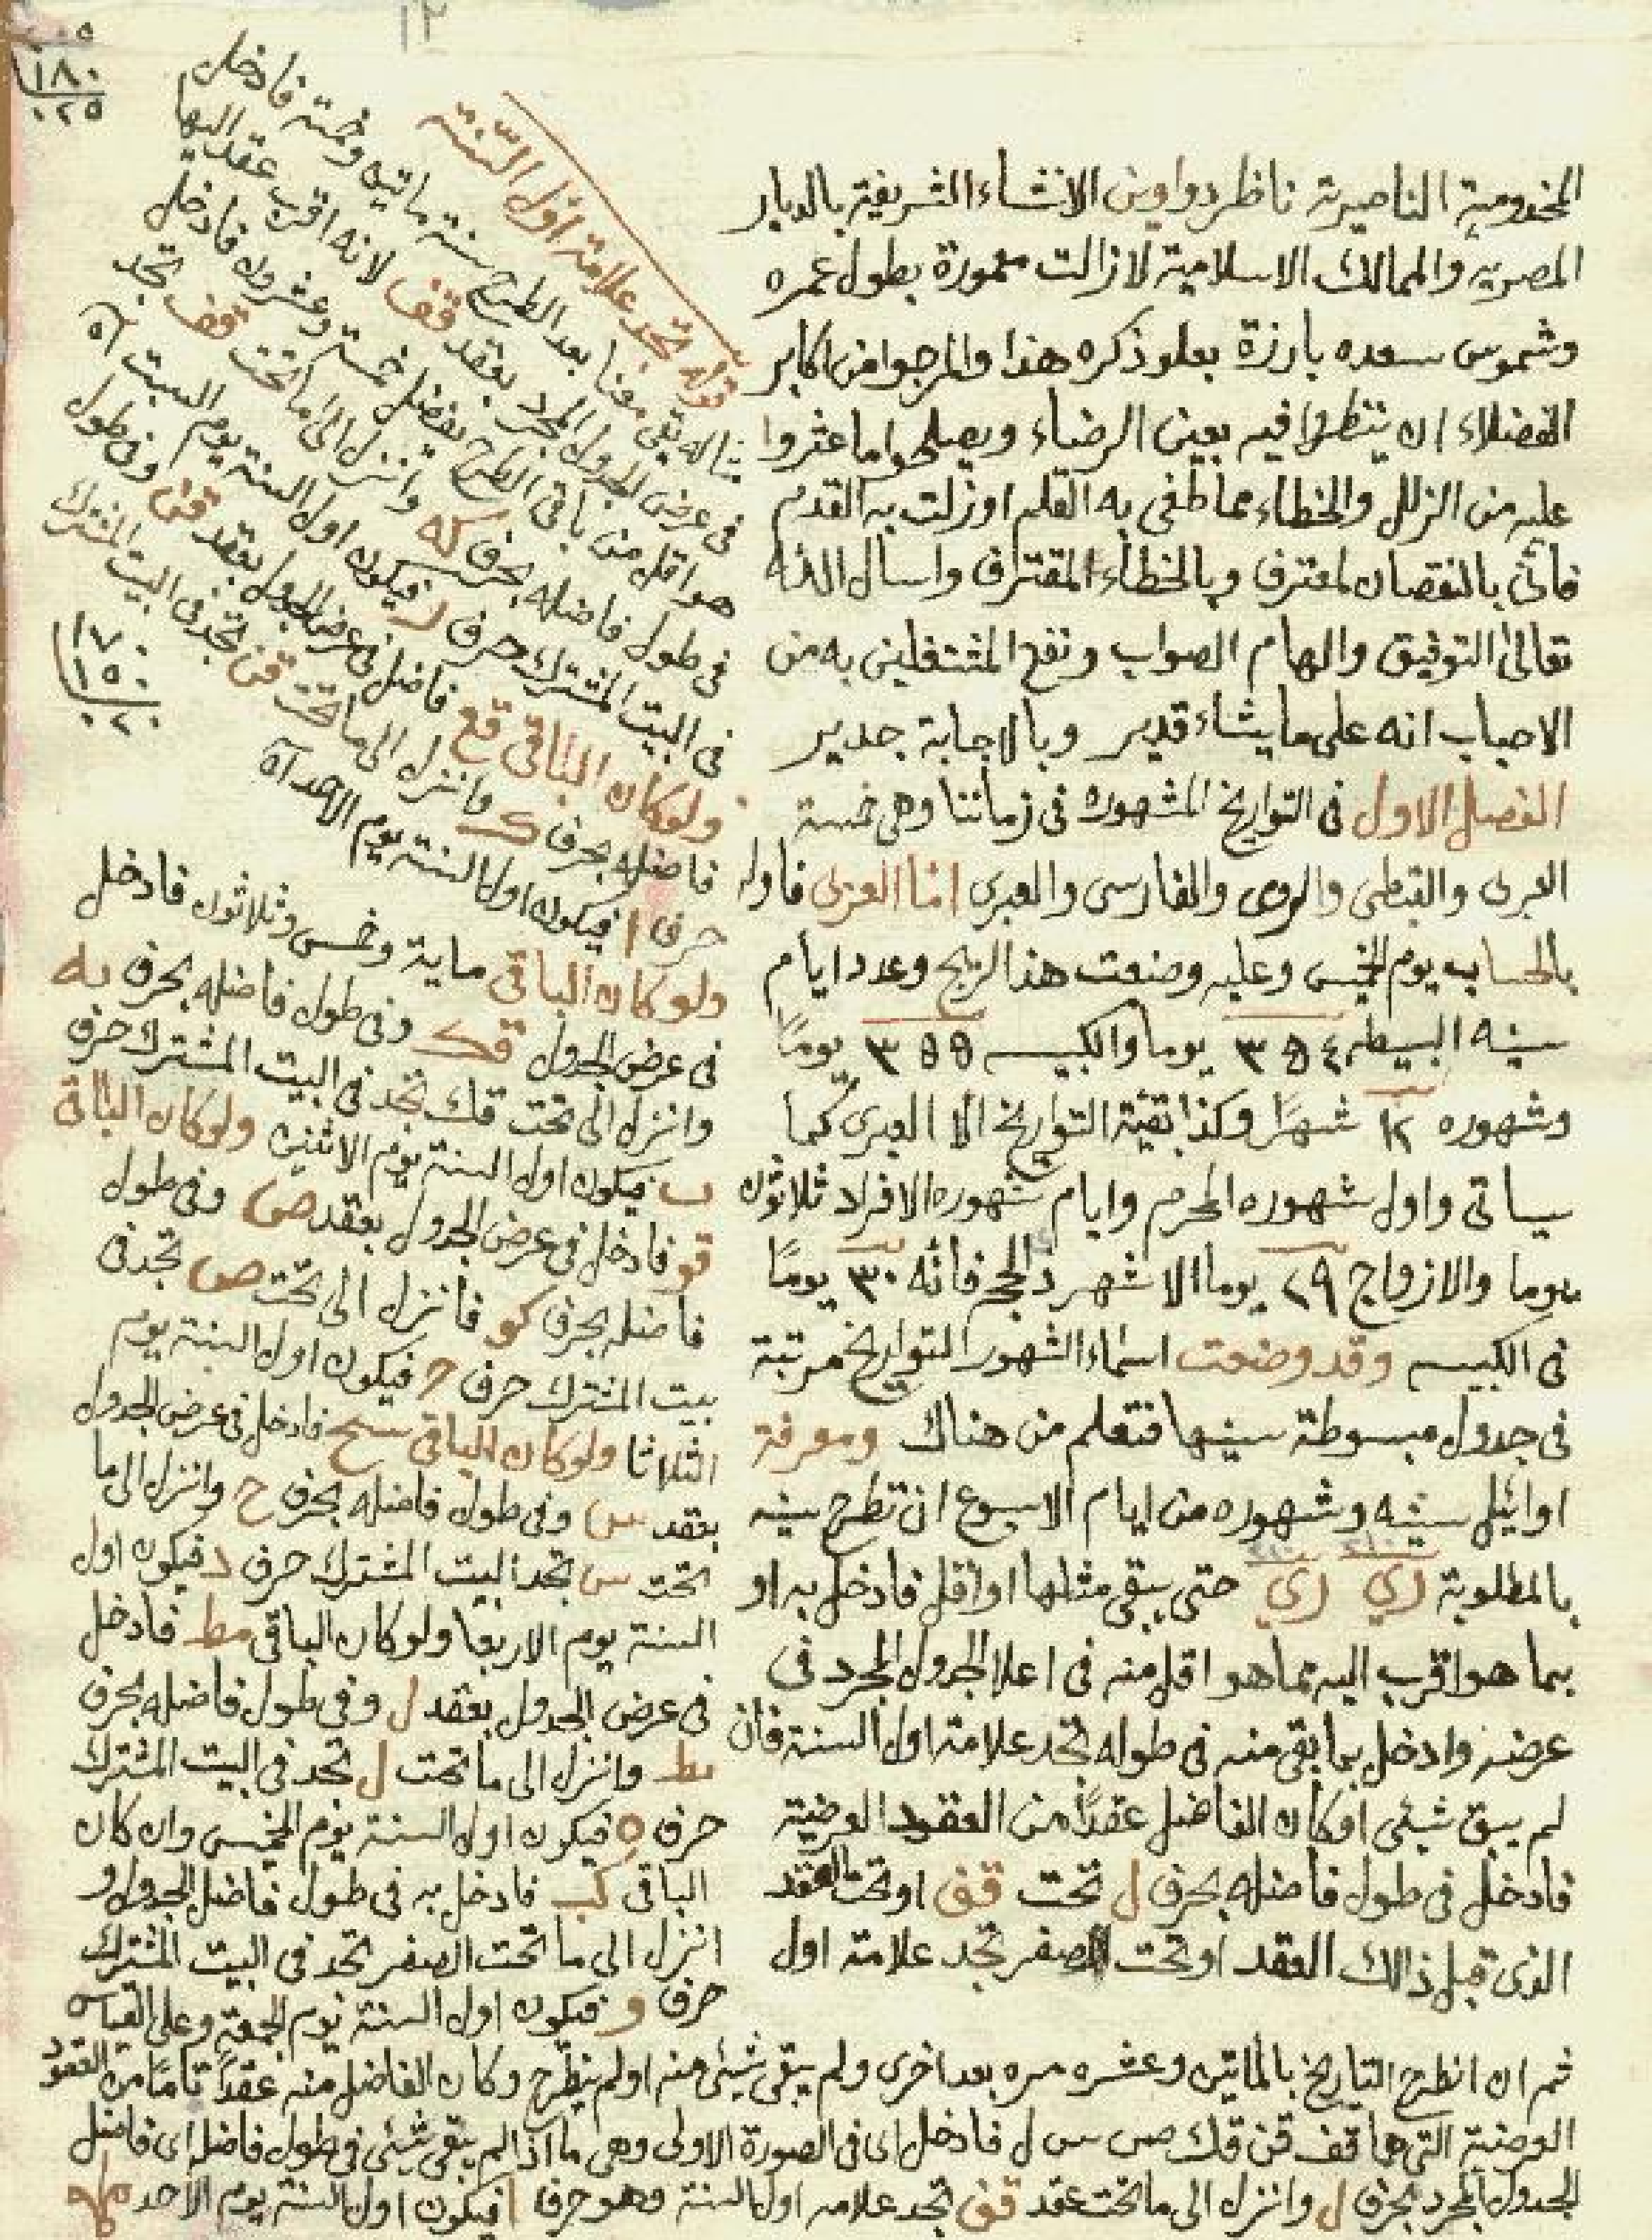 ١٢
المخدومية الناصرية ناظر دواوين الانشاء الشريفة بالديار
المصرية والممالك الاسلامية لازالت معمورة بطول عمره
وشموس سعده بارزة بعلو ذكره هذا والمرجوا من اكابر
الفضلاء ان ينظروا فيه بعين الرضاء ويصلحوا ما عثروا
عليه من الزلل والخطاء مما طغى به القلم او زلت به القدم
فانى بالنقصان لمعترف وبالخطاء المقترف واسال الله
تعالى التوفيق والهام الصواب ونفع المشتغلين به من
الاحباب انه على ما يشاء قدير وبالاجابة جدير
الفصل الاول فى التواريخ المشهوره فى زماننا وهى خمسة
العربى والقبطى والرومى والفارسى والعبرى اما العربى فاوله
بالحساب يوم الخميس وعليه وضعت هذا الزيج وعدد ايام
سينه البسيطه ٣٥٤ يوما والكبيسه ٣٥٥ يومًا
وشهوره ١٢ شهرًا وكذا بقية التواريخ الا العبرى كما
سياتى واول شهوره المحرم وايام شهوره الافراد ثلاثون
يوما والازواج ٢٩ يوما الا شهر ذ الحجه فانه ٣٠ يومًا
فى الكبيسه وقد وضعت اسماء الشهور التواريخ مرتبة
فى جدول مبسوطة سينها فتعلم من هناك ومعرفة
اوائيل سينه وشهوره من ايام الاسبوع ان تطرح سينه
بالمطلوبة رى رى حتى يبقى مثلها او اقل فادخل به او
بما هو اقرب اليه مما هو اقل منه فى اعلا الجدول المجرد فى
عرضه وادخل بما بقى منه فى طوله تجد علامة اول السنة فان
لم يبق شيئى او كان الفاضل عقدًا من العقود العرضية
فادخل فى طول فاضله بحرف ل تحت قف او تحت العقد
الذى قبل ذالك العقد او تحت الصفر تجد علامة اول
ثم ان انطرح التاريخ بالمأتين وعشره مره بعد اخرى ولم يبقى شيئى منه او لم ينطرح وكان الفاضل منه عقدًا تامًا من العقود
العرضية التى هى قف قن قك ص س ل فادخل اى فى الصورة الاولى وهى ما اذا لم يبقى شيئى فى طول فاضل اى فاضل
الجدول المجرد بحرف ل وانزل الى ما تحت عقد قف تجد علامه اول السنة وهو حرف ا فيكون اول السنة يوم الاحد
قوله تجد علامة اول السنة
مثاله بقى معنا بعد الطرح سنة ماتين وخمسة فادخل
فى عرض الجدول المجرد بعقد قف لانه اقرب عقد اليها
هو اقل من باقى الطرح يفضل خمسة وعشرون فادخل
فى طول فاضله بحرف كه وانزل الى ما تحت قف تجد
فى البيت المشترك حرف ز فيكون اول السنة يوم السبت
ولو كان الباقى قع فادخل فى عرض الجدول بعقد قن وفى طول
فاضله بحرف ك وانزل الى ما تحت قن تجد فى البيت المشترك
حرف ا فيكون اول السنة يوم الاحد
ولو كان الباقى ماية وخمس وثلاثون فادخل
فى عرض الجدول قك وفى طول فاضله بحرف يه
وانزل الى تحت قك تجد فى البيت المشترك حرف
ب فيكون اول السنة يوم الاثنين ولو كان الباقى
قو فادخل فى عرض الجدول بعقد ص وفى طول
فاضله بحرف كو فانزل الى تحت ص تجد فى
بيت المشترك حرف ج فيكون اول السنة يوم
الثلاثا ولو كان الباقى سح فادخل فى عرض الجدول
بعقد س وفى طول فاضله بحرف ح وانزل الى ما
تحت س تجد البيت المشترك حرف د فيكون اول
السنة يوم الاربعا ولو كان الباقى مط فادخل
فى عرض الجدول بعقد ل وفى طول فاضله بحرف
يط وانزل الى ما تحت ل تجد فى البيت المشترك
حرف ه فيكون اول السنة يوم الخميس وان كان
الباقى كب فادخل به فى طول فاضل الجدول و
انزل الى ما تحت الصفر تجد فى البيت المشترك
حرف و فيكون اول السنة يوم الجمعة وعلى القياس
١٨٠
٠٢٥
١٧٠
١٥٠
٠٢٠